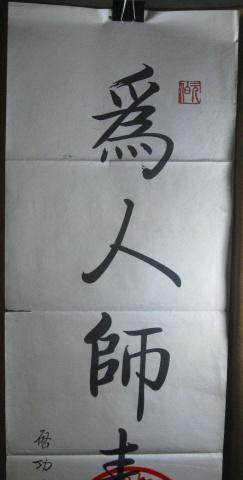 為人師表
啓功